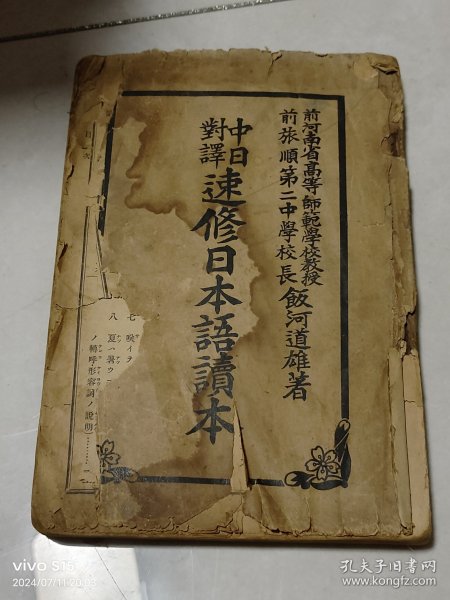 前河南省高等師範學校教授
前旅順第二中學校長 飯河道雄著
中日
對譯
速修日本語讀本
七
八 夏ハ暑ウ
ノ轉呼形容詞ノ說明
vivo S15
2024/07/11 20:03
孔夫子旧书网
www.kongfz.com